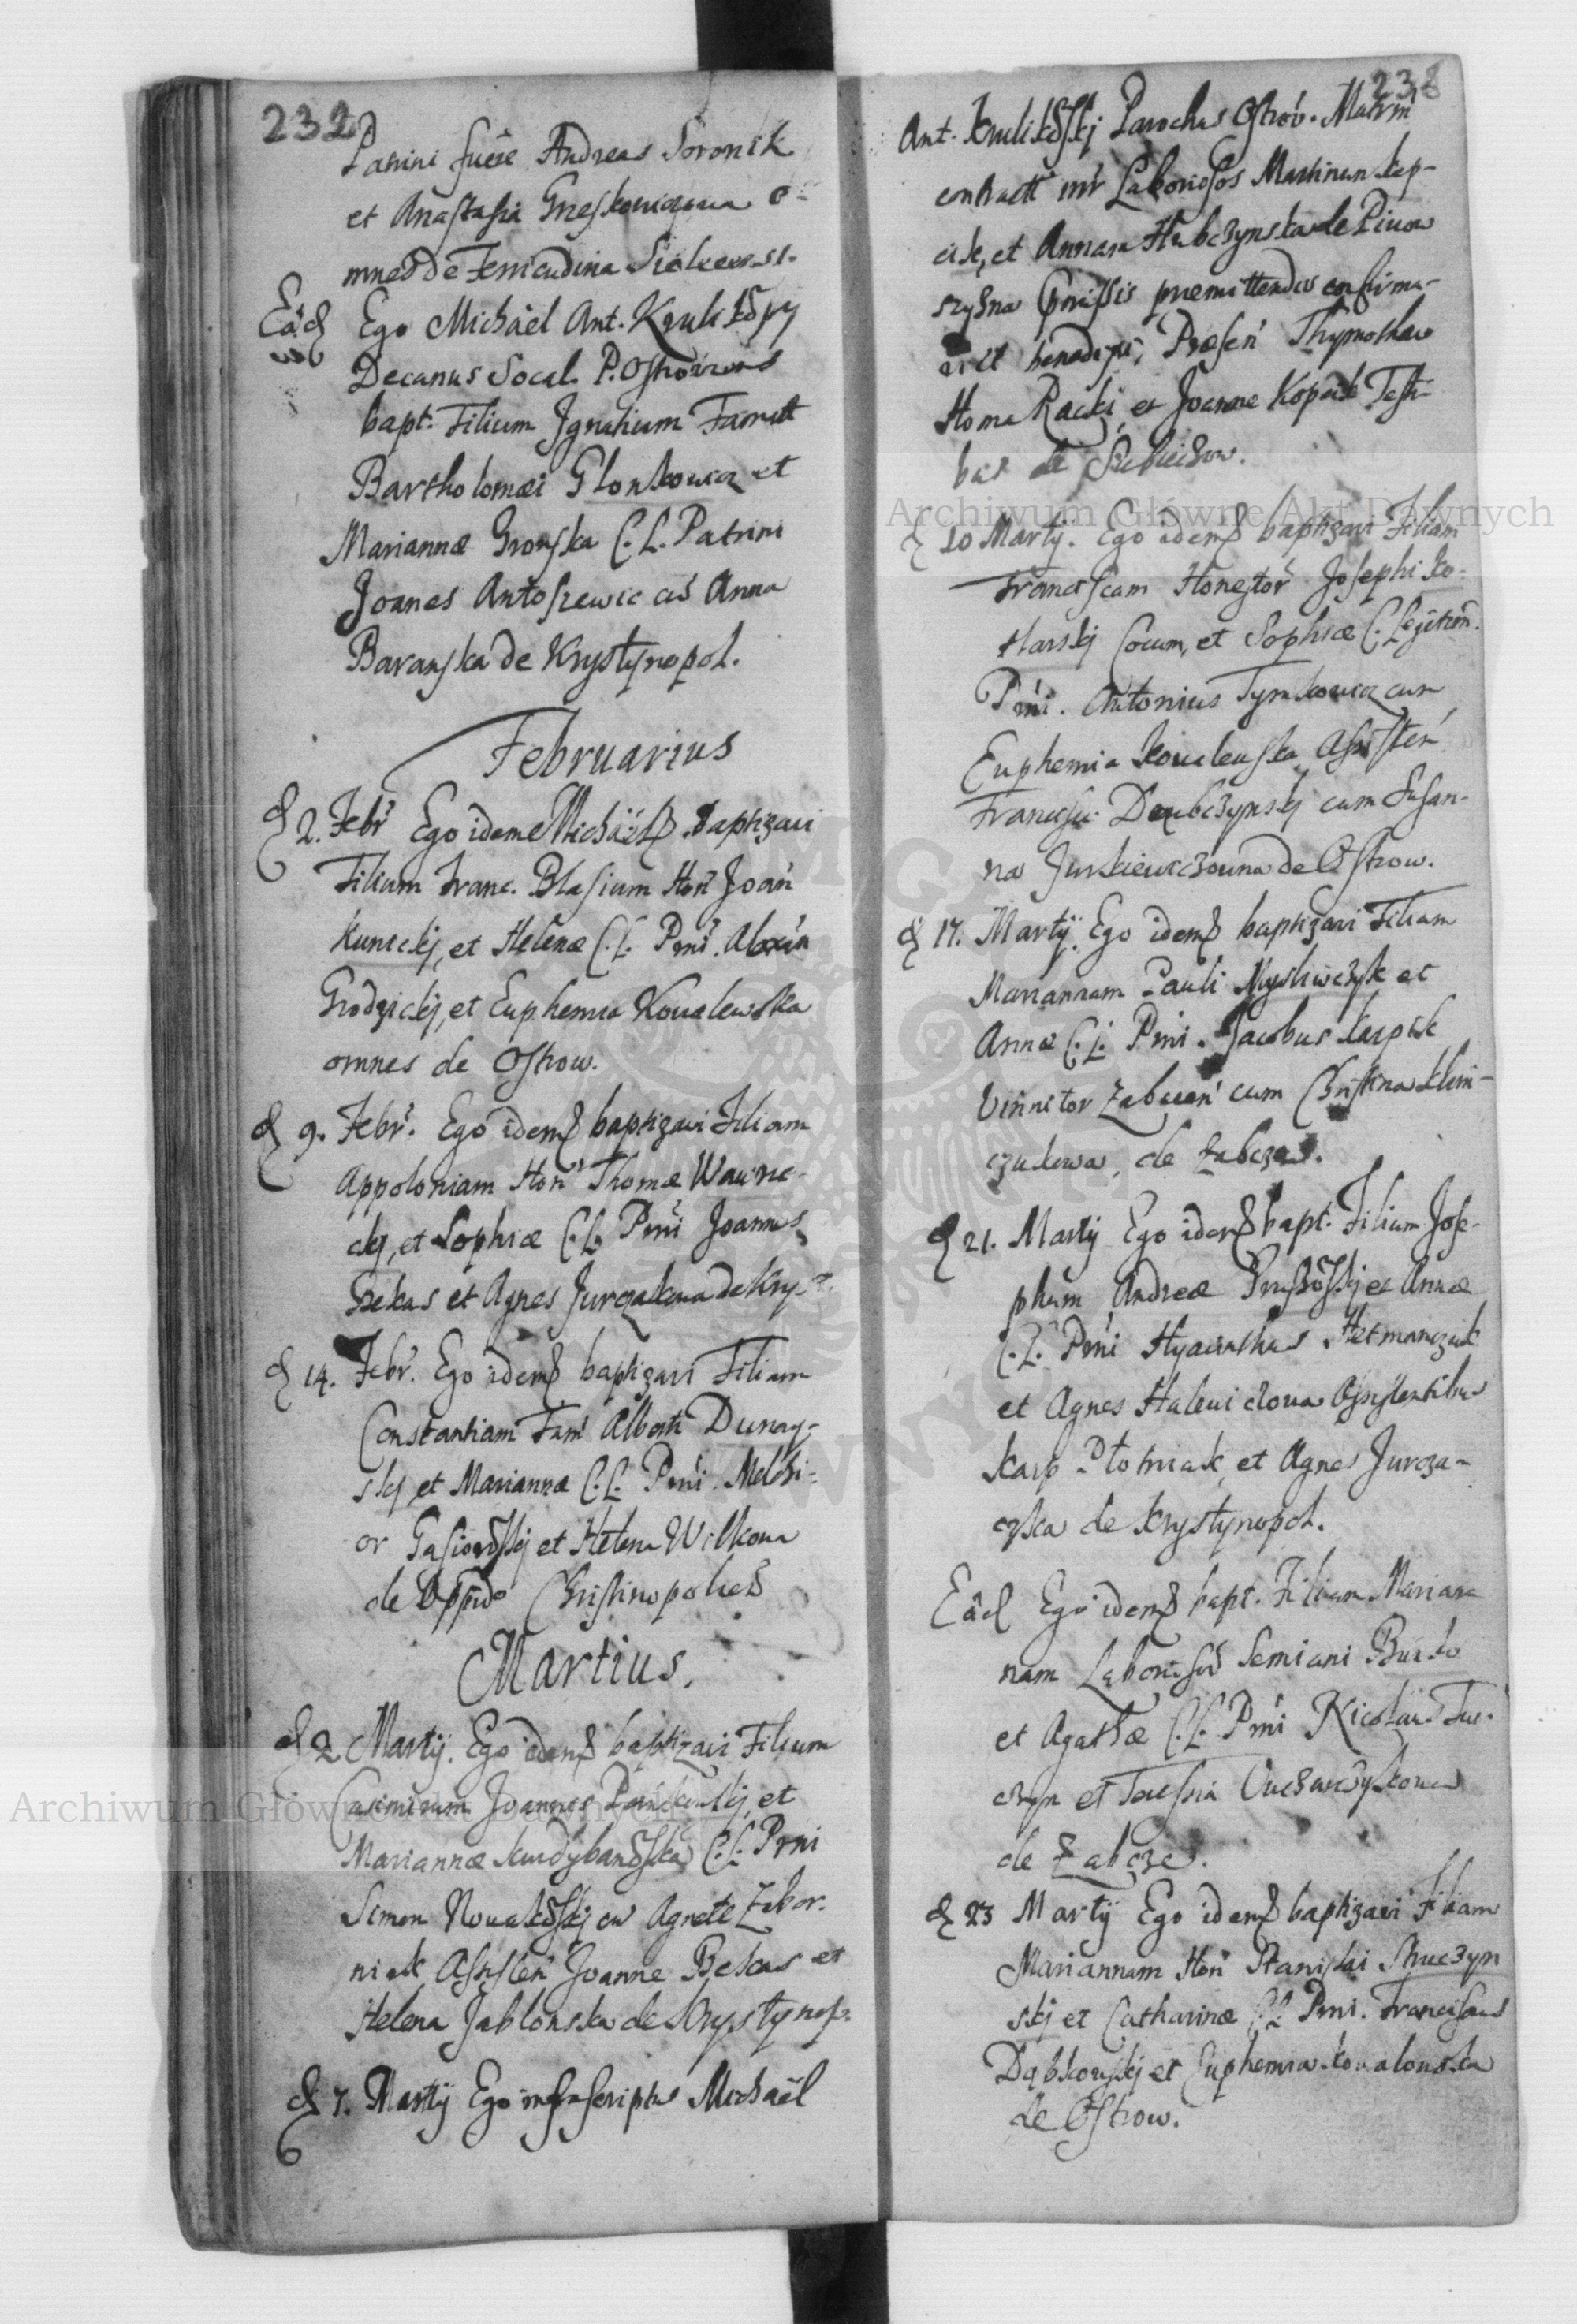 232
Patrini fuere Andreas Soronik
et Anastasia Grieskowiczowa o-
mnes de
Eâd Ego Michâel Ant. Krulikow̃sky
Decanus Socal. P. Ostroviens
bapt. Filium Ignatium Famat
Bartholomæi Glonkowicz et
Mariannæ Gronska C. L. Patrini
Joanes Antoszewic cũ Anna
Baranska de Krystynopol.
Februarius
d 2. Febr̃ Ego idem Michäel baptizavi
Filium Franc. Blasium Hon̄ Joan̄
Kunickj, et Helenæ C. L. Pnī. Alexan
Grodzickj, et Euphemia Kovalewska
omnes de Ostrow.
d 9. Febr̃. Ego idem baptizavi Filiam
Appoloniam Hon̄ Thomæ Wawrec-
ckj, et Sophiæ C. L. Pnī Joannes
Bekas et Agnes Jurczakowa de Kry
d 14. Febr̃. Ego idem baptizavi Filiam
Constantiam Fam̄ Alberti Dunay-
skj et Mariannæ C. L. Pnī. Melchi-
or Gasiorow̃skj et Helena Wilkowa
de Oppido Christinopolies
Martius.
d 2 Martÿ. Ego idem baptizavi Filium
Casimirum Joannes et
Mariannæ C. L. Pnī
Simon Novakow̃skj cũ Agnete Zabor-
niak Assisten̄ Joanne Bekas et
Helena Jablonska de Krystynop.
d 7. Martÿ Ego infrascriptus Michaël
238
Ant. Krulikow̃skj Parochus Ostrov. Matrim̄
contractũ intr Laboriosos Martinum Kap-
cik, et Annam Hubczynska de Pivow
szyzna præmissis præmittendis confirma-
vi et benedixi, Præsen̄ Thymotheo
Homa Racki, et Joanne Kopcik Testi-
bus de
d 10 Martÿ. Ego idem baptizavi Filiam
Franciscam Honestor̃ Josephi Ko-
tlarskj Cocum, et Sophiæ C. Legitim̄.
Pnī. Antonius Tymkowicz cum
Euphemia Kovalewska Assisten̄
Francisci Dembczynskj cum Susan-
na Jurkiewiczowna de Ostrow.
d 17. Martÿ. Ego idem baptizavi Filiam
Mariannam Pauli Mysliwczyk et
Annæ C. L. Pnī. Jacobus Karpik
Vinnitor Zabcen̄ cum Christina Klim-
czukowa, de Zabcza.
d 21. Martÿ Ego idem bapt. Filium Jose-
phum Andreæ et Annæ
C. L. Pnī Hyacinthus Hetmanczuk
et Agnes Halewiczowa Assistentibus
Karp Plotniak, et Agnes Jurcza-
czka de Krystynopol.
Eâd Ego idem bapt. Filiam Marian-
nam Laborioson̄ Semiani Burko
et Agathæ C. L. Pnī Nicolaus Tur-
czyn et Teressia
de Zabcze.
d 23 Martÿ Ego idem baptizavi Filiam
Mariannam Hon̄ Stanislai Kuczyn
skj et Catharinæ C. L. Pnī. Franciscus
Dąbkowskj et Euphemia Kovalowska
de Ostrow.
Archiwum Główne Akt Dawnych
Archiwum Główne Akt Dawnych